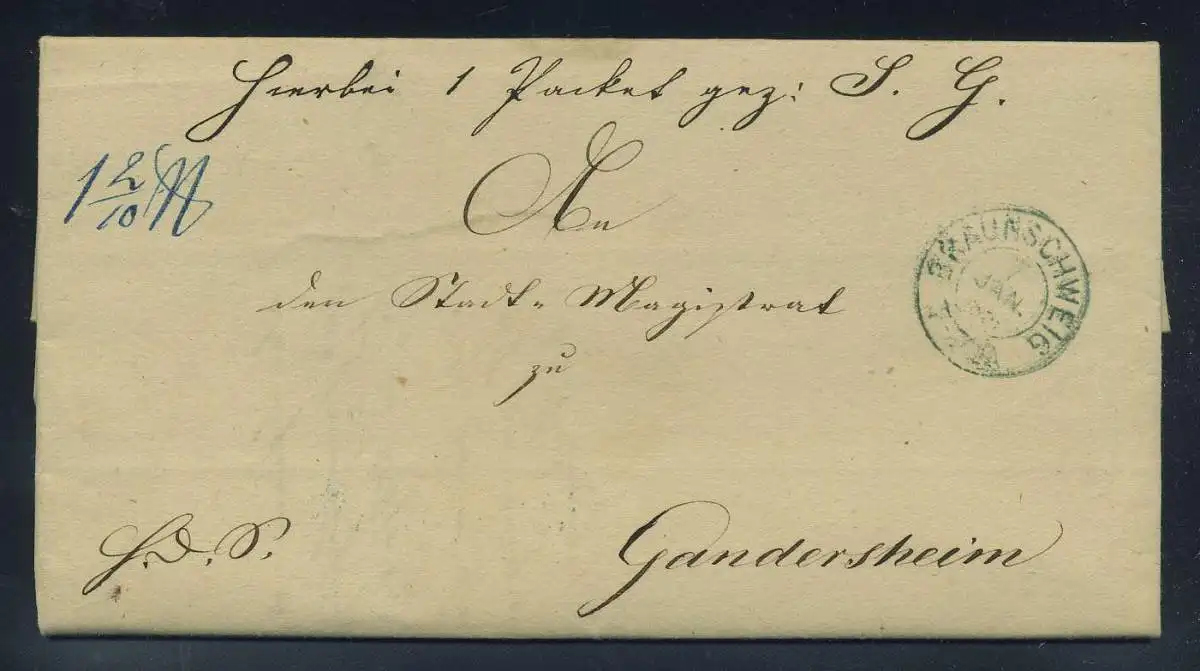 Hierbei 1 Packet gez: S. G.
1 2/10 ℔
An
den Stadt-Magistrat
zu
BRAUNSCHWEIG
7
JAN.
H. D. S.
Gandersheim